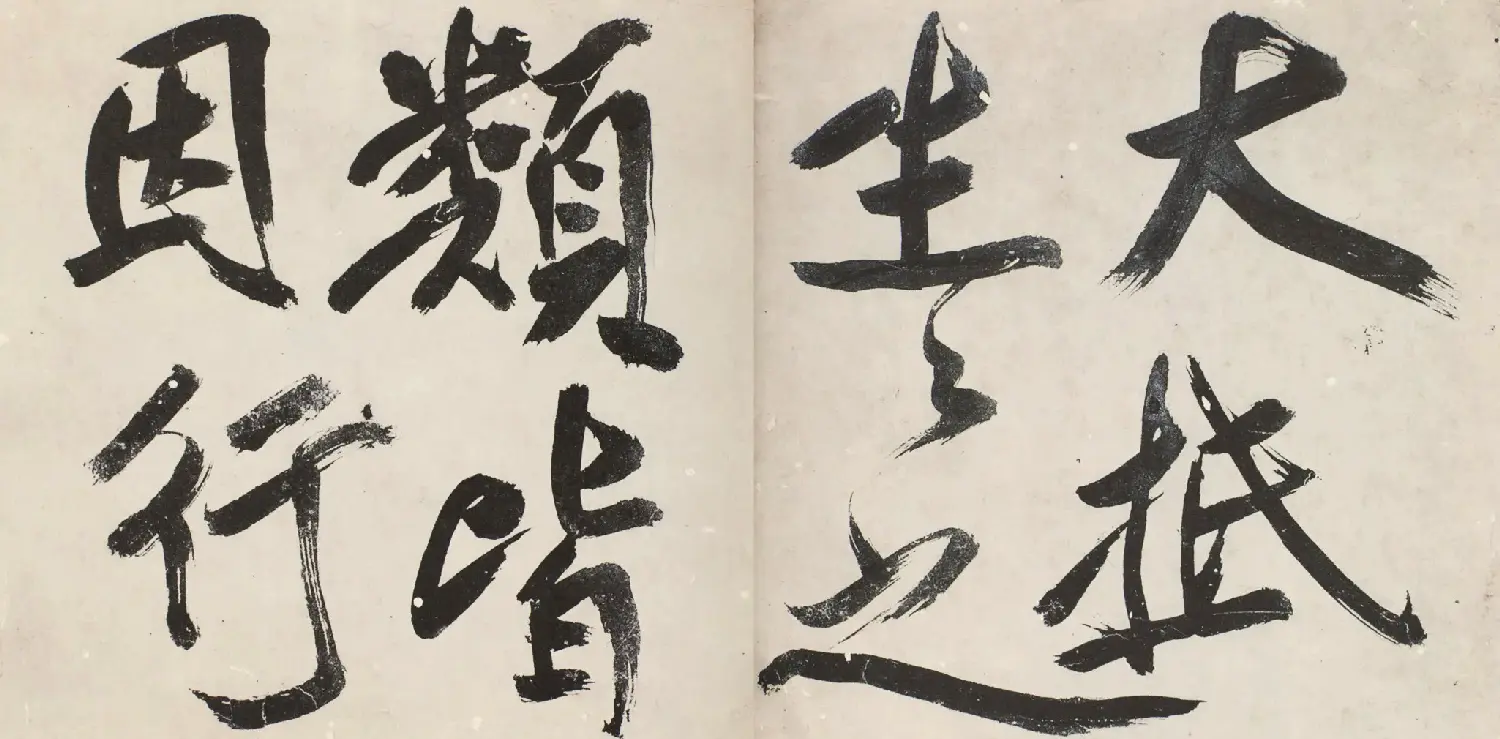 大抵
生之
類皆
因行